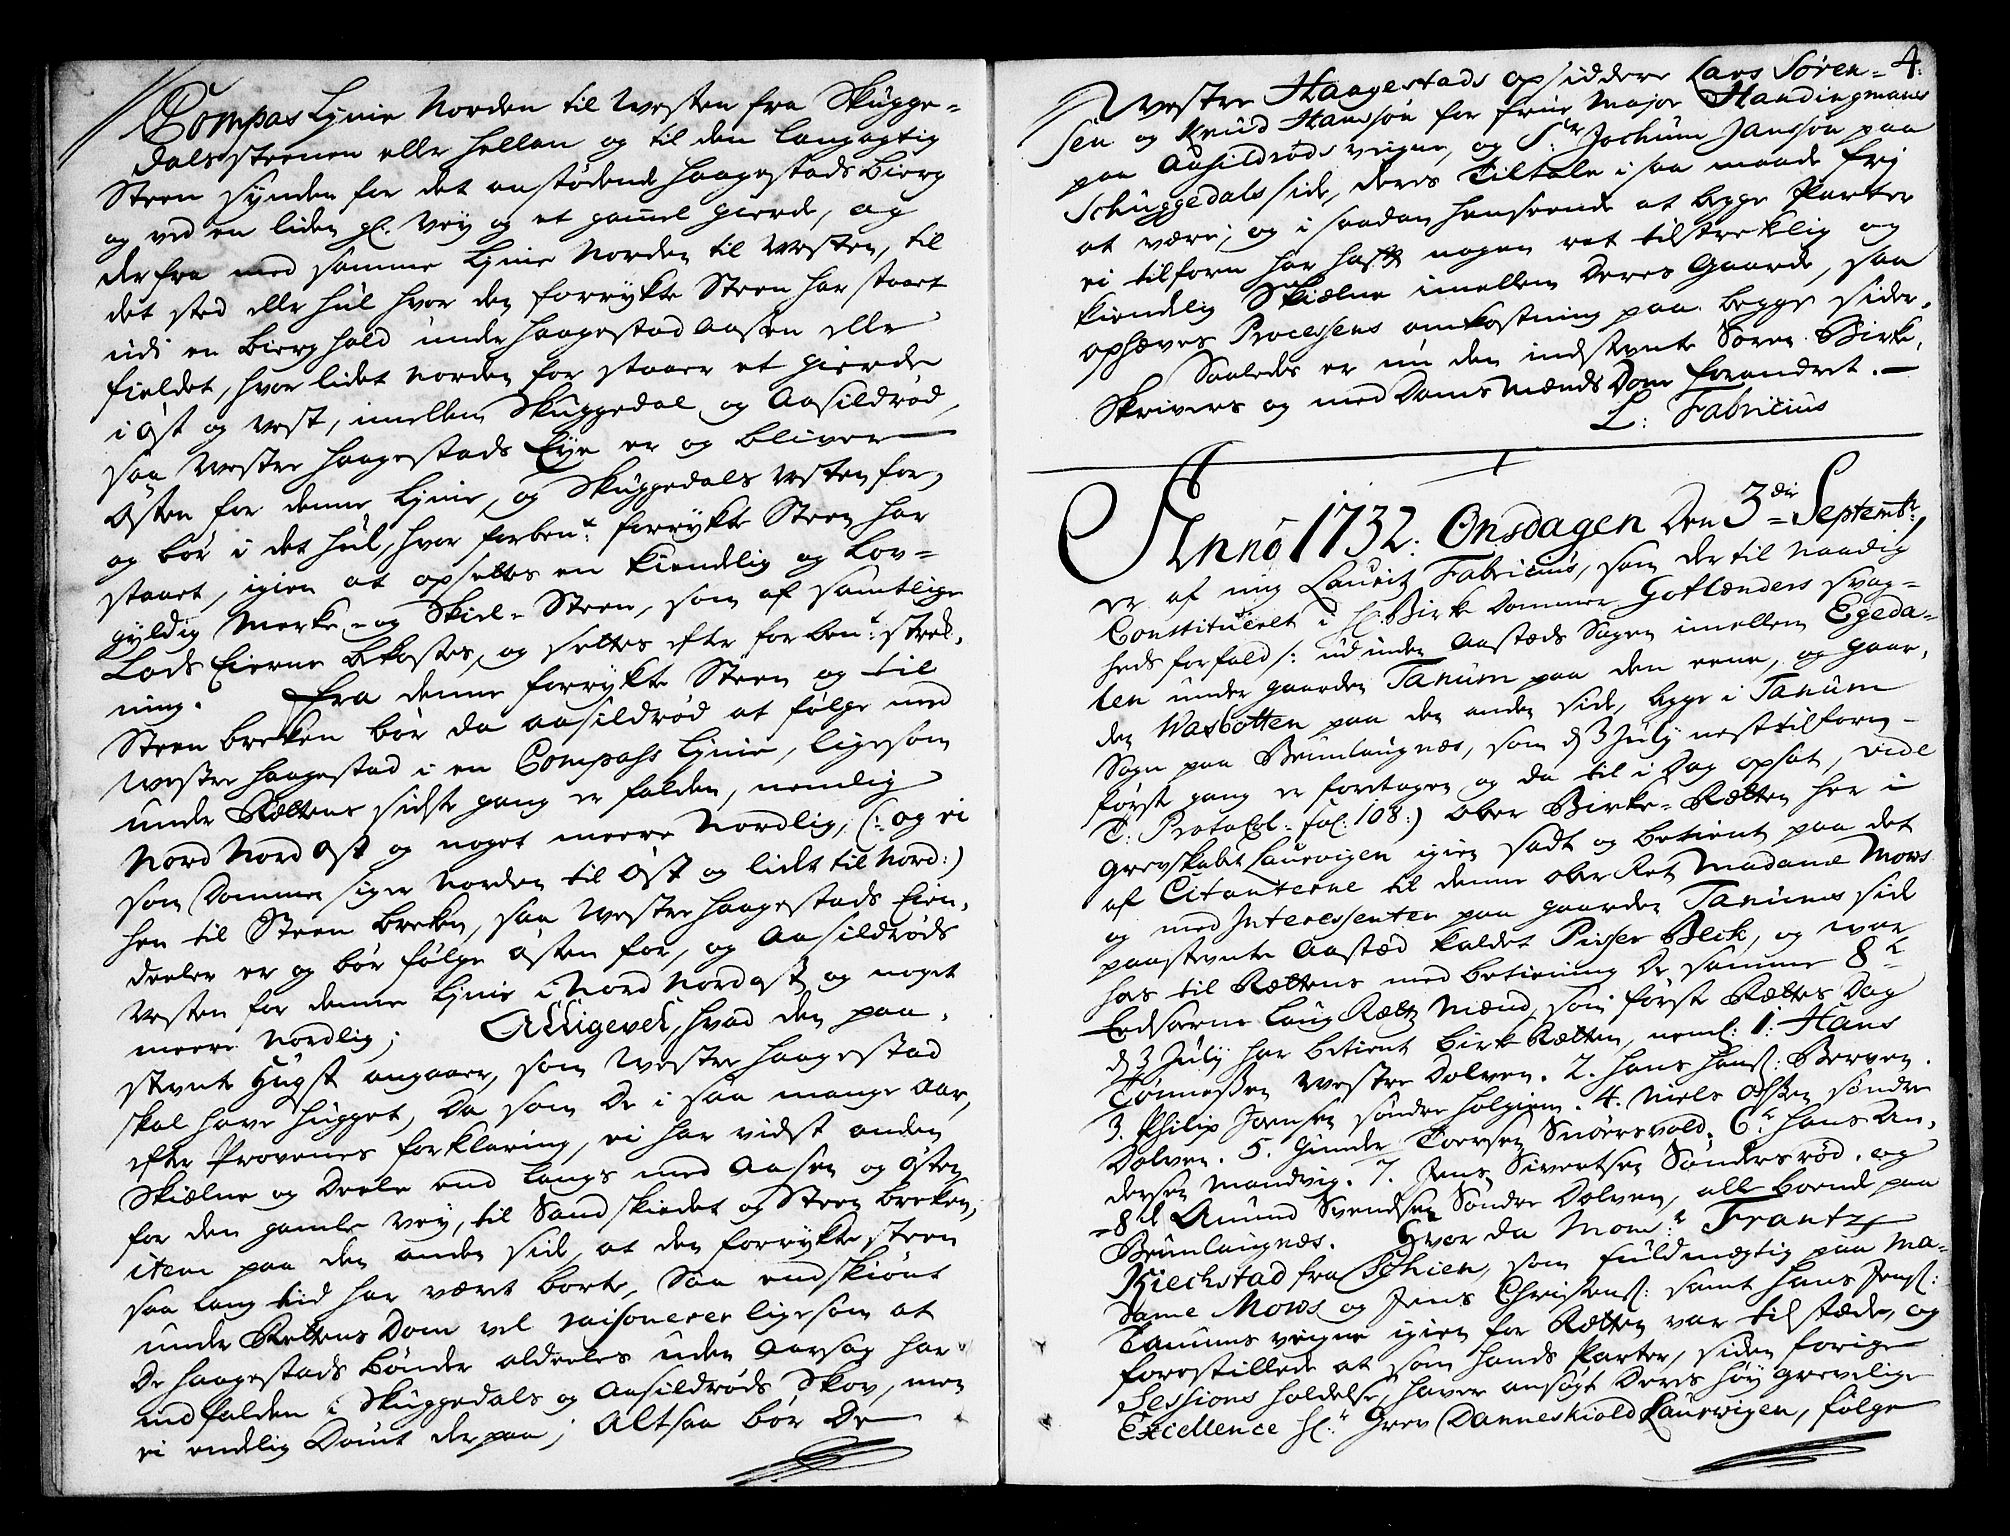 Compas Lynie Norden til Westen fra Skugge-
dalssteenen eller hellen og til den langagtig
Steen synden for det anstødende Haagestads Bierg
og ved en liden gl. Vey og et gammel gierde, og
derfra med samme Lynie Norden til Westen, til
det sted eller hul hvor den forrykte Steen har staaet
udi en Bierg hald under Haagestad Aasen eller
fieldet, hvor lidet norden for staaer et gierde
i Øst og Vest, imellem Skuggedal og Aasildrød,
saa Westre Haagestads Eye er og bliver
Østen for denne Lynie, og Skuggedals Vesten for,
og bør i det hul, hvor forben:te forrykte Steen har
staaet, igien at opsettes en kiendlig og Lov-
gyldig Merke- og Skiel-Steen, som af samtlige
Lods Eierne bekostes, og settes efter forben:t strek-
ning. Fra denne forrykte Steen og til
Steen breken bør da Aasildrød at følge med
Westre Haagestad i en Compass Lynie, ligesom
under Rettens sidste gang er falden, nemlig
Nord Nord Ost og noget meere Nordlig, (: og ei
som Dommen siger Norden til Øst og lidet til Nord:)
hen til Steen breken, saa Westre Haagestads Eien-
deeler er og bør følge Østen for, og Aasildrøds
Vesten for denne Lynie i Nord Nordost og noget
meere Nordlig; Alligevel, hvad den paa-
stevnte Hugst angaaer, som Westre Haagestad
skal have hugget, Da som De i saa mange Aar,
efter Provenes forklaring, ei har vidst anden
Skielne og Deele end langs med Aasen og Østen
for den gamle Vey, til Sandskiedet og Steen breken,
item paa den anden side, at den forrykte steen
saa lang tid har været borte, Saa endskiønt
under Rettens Dom vel raisonerer ligesom at
De Haagestads Bønder aldeeles uden Aarsag har
indfalden i Skuggedals og Aasildrøds Skov, men
ei endelig Dømt derpaa; Altsaa bør De
4.
Westre Haagestads opsiddere Lars Søren-
sen og Knud Hansøn for frue Major Handingmans
paa Aasildrøds veigne, og Sr. Jochum Jansøn paa
Schuggedals side, deres Tiltale i saa maade frj
at være; og i saadan henseende at begge Parter
ei tilforn har hafft nogen ret tilstreklig og
kiendelig Skielne imellem Deres Gaarde, saa
ophæves Processens omkostning paa begge sider.
Saaledes er nu den indstevnte Soren Birke-
Skrivers og meddomsmænds Dom forandret.
L: Fabricius
Anno 1732. Onsdagen Den 3die Septembr,
er af mig Lauritz Fabricius, som der til naadig
Constitueret i hl. Birke Dommer Gotlænders svag-
heds forfald /: ud inden Aastæds Sagen imellem Egeda-
len under gaarden Tanum paa den eene, og gaar-
den Wasbotten paa den anden side, begge i Tanum
Sogn paa Brunlaugnæs, som d 3 July nesttilforn
første gang er foretagen og da til i Dag opsat, vide
T: Protocol: fol: 108:) Ober Birke-Rætten her i
Grevskabet Laurvigen igien sadt og betient paa det
af Citanterne til denne ober Ret Madame Mows
og med Interessenter paa gaarden Tanums side
paastevnte Aastæd kaldet Pisser Bech, og war
hos til Rettens med betiening De samme 8te
Eedsorne Laug Rætts Mænd, som første Rættes Dag
d 3 July har betient Birke Rætten, neml: 1: Hans
Tønnessen Westre Dolven. 2. Hans Hans: Berven.
3. Philip Jornsen søndre Holgien. 4. Niels Olssen søndre
Dolven. 5. Gunder Toersen Snoersvold. 6te Hans An-
dersen Mandvig. 7. Jens Sivertsen Søndersrød. og
8de Amund Svendsen Søndre Dolven, alle boende paa
Brunlaugnæs. Hvor da Mons:r Frantz
Kiechstad fra Schien, som fuldmægtig paa Ma-
dame Mows og Jens Christens: samt Hans Jens:
Tanums veigne igien for Rætten var til stæde, og
forestillede at som hands Parter, siden forige
Sessions holdelse, haver ansøgt Deres høy Grevelige
Excellence hl:r Grev Danneskiold Laurwigen, følge